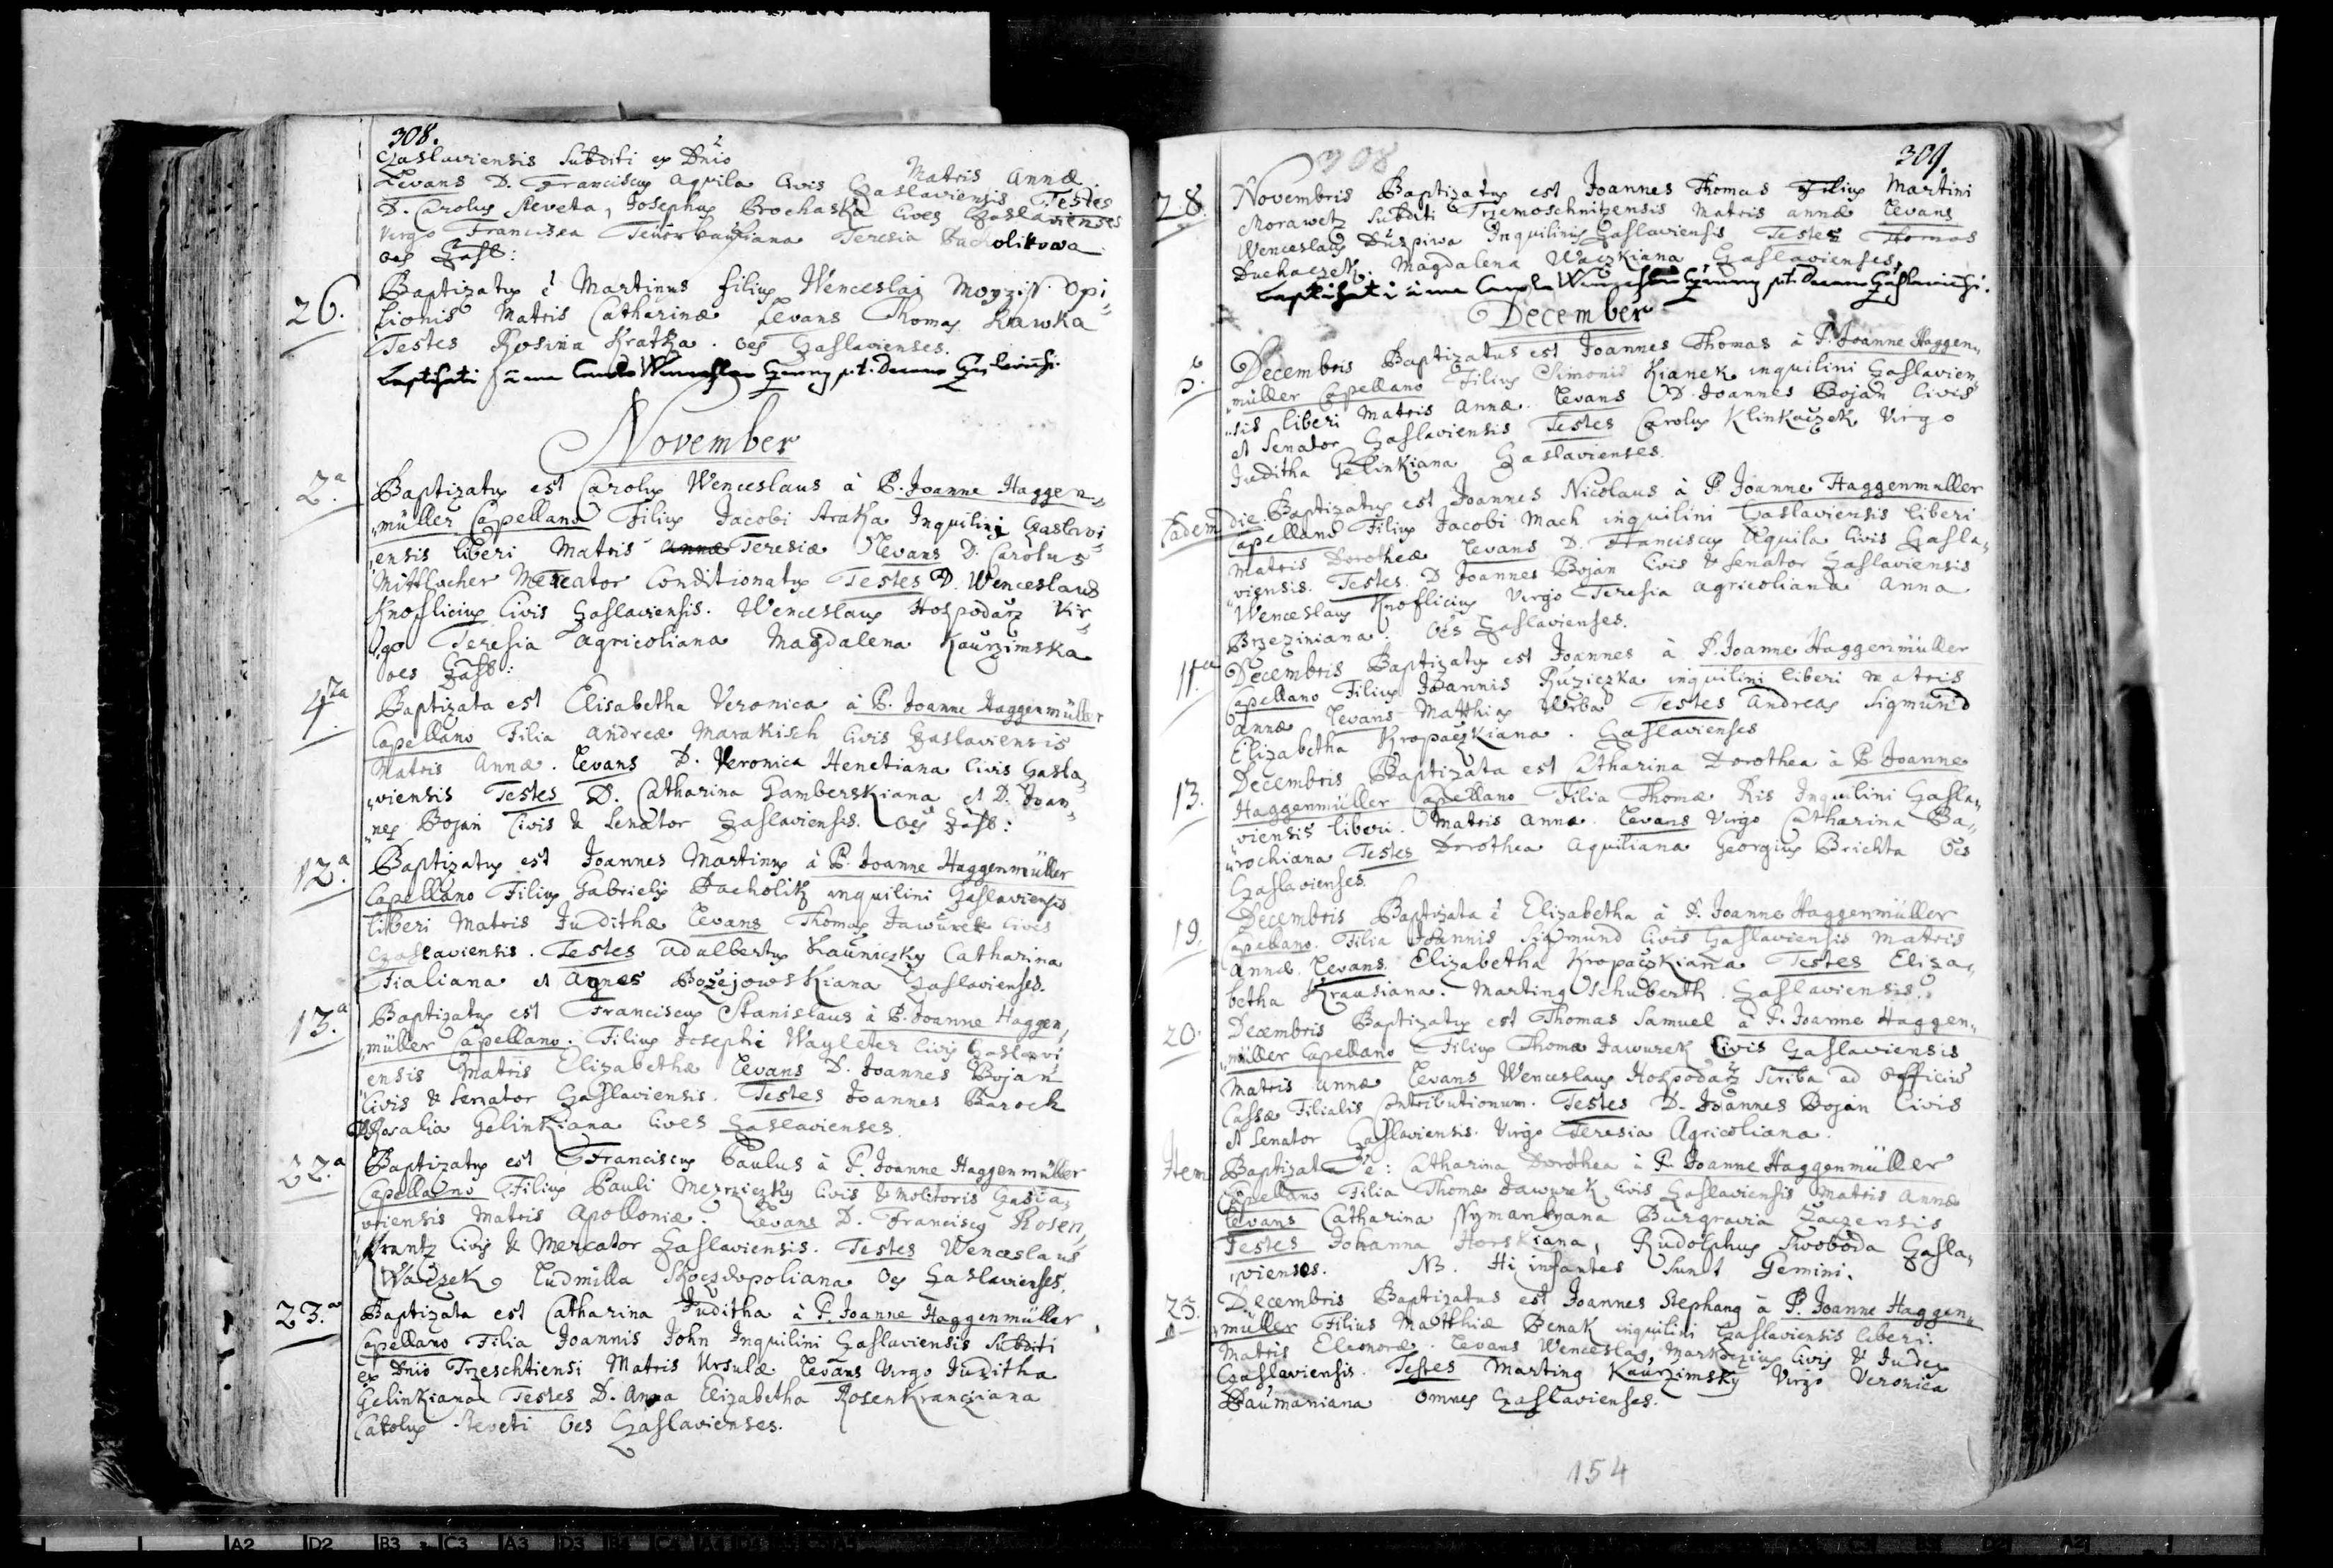 308.
Czaslaviensis Subditi ex Dnio Matris Annæ
Levans D. Franciscus Aquila Civis Czaslaviensis Testes
D. Carolus Steveta, Josephus Prochaska Cives Czaslavienses
Virgo Francisca Teresia Bacholikowa
oes Czasl:
26. Baptizatus ē Martinus filius Wenceslai Moyzis Opi=
lionis Matris Catharinæ Levans Thomas Krawka
Testes Rosina Kratka. oes Czaslavienses.
baptisati à me Wenceslao Czerny p.t. Decano Czaslaviensi.
November
2.a Baptizatus est Carolus Wenceslaus à P. Joanne Haggen=
müller Capellano Filius Jacobi Straka Inquilini Czaslavi=
ensis liberi Matris Annæ Teresiæ Levans D. Carolus
Mittlacher Mercator Conditionatus Testes D. Wenceslaus
Knoflicius Civis Czaslaviensis. Wenceslaus Hospodarz Vir=
go Teresia Agricoliana Magdalena Kaurzimska
oes Czasl:
4ta Baptizata est Elisabetha Veronica à P. Joanne Haggenmüller
Capellano Filia Andreæ Marakisch Civis Czaslaviensis
Matris Annæ. Levans D. Veronica Henetiana Civis Czasla=
viensis Testes D. Catharina Gamberskiana et D. Joan=
nes Bojan Civis & Senator Czaslaviensis. Oes Czasl:
12.a Baptizatus est Joannes Martinus à P. Joanne Haggenmüller
Capellano Filius Gabrielis Bacholik inquilini Czaslaviensis
liberi Matris Judithæ Levans Thomas Jawurek Civis
Czaslaviensis. Testes Adalbertus Launiczky Catharina
Fialiana et Agnes Bozejowskiana Czaslavienses.
13.a Baptizatus est Franciscus Stanislaus à P. Joanne Haggen=
müller Capellano. Filius Josephi Wayleter Civis Czaslavi=
ensis Matris Elizabethæ Levans D. Joannes Bojan
Civis & Senator Czaslaviensis. Testes Joannes Baroch
Rosalia Gelinkiana Cives Czaslavienses.
22.a Baptizatus est Franciscus Paulus à P. Joanne Haggenmüller
Capellano Filius Pauli Mezrziczky Civis & Molitoris Czasla=
viensis Matris Apolloniæ. Levans D. Franciscus Rosen=
krantz Civis & Mercator Czaslaviensis. Testes Wenceslaus
Waczek Ludmilla Skoczdopoliana Oes Czaslavienses.
23.a Baptizata est Catharina Juditha à P. Joanne Haggenmüller
Capellano Filia Joannis John Inquilini Czaslaviensis Subditi
ex Dnio Trzeschtiensi Matris Ursulæ Levans Virgo Juditha
Gelinkiana Testes D. Anna Elizabetha Rosenkrancziana
Carolus Steveti Oes Czaslavienses.
308 309.
28. Novembris Baptizatus est Joannes Thomas Filius Martini
Morawetz Subditi Trzemoschnitzensis Matris Annæ Levans
Wenceslaus Duspiwa Inquilinus Czaslaviensis Testes Thomas
Duchaczek. Magdalena Waczkiana Czaslavienses.
baptisati à me Wenceslao Czerny p.t. Decano Czaslaviensi.
December
5. Decembris Baptizatus est Joannes Thomas à P. Joanne Haggen=
müller Capellano Filius Simonis Kianek inquilini Czaslavien=
sis liberi Matris Annæ. Levans D. Joannes Bojan Civis
et Senator Czaslaviensis Testes Carolus Klinkaczek Virgo
Juditha Gelinkiana Czaslavienses.
Eadem die Baptizatus est Joannes Nicolaus à P. Joanne Haggenmuller
Capellano Filius Jacobi Mach inquilini Czaslaviensis liberi
Matris Dorotheæ Levans D. Franciscus Aquila Civis Czasla=
viensis. Testes. D Joannes Bojan Civis & Senator Czaslaviensis
Wenceslaus Knoflicius Virgo Teresia Agricoliana Anna
Brzeziniana. Oes Czaslavienses.
11.a Decembris Baptizatus est Joannes à P. Joanne Haggenmüller
Capellano Filius Joannis Ruziczka inquilini liberi Matris
Annæ Levans Matthias Wrba Testes Andreas Sigmund
Elizabetha Kropaczkiana. Czaslavienses
13. Decembris Baptizata est Catharina Dorothea à P Joanne
Haggenmüller Capellano Filia Thomæ Ris Inquilini Czasla=
viensis liberi. Matris Annæ. Levans Virgo Catharina Ba=
rochiana Testes Dorothea Aquiliana Georgius Brichta Oes
Czaslavienses.
19. Decembris Baptizata ē Elizabetha à P. Joanne Haggenmüller
Capellano. Filia Joannis Sigmund Civis Czaslaviensis Matris
Annæ. Levans. Elizabetha Kropaczkiana Testes Eliza=
betha Kraasiana. Martinus Schuberth. Czaslaviensis.
20. Decembris Baptizatus est Thomas Samuel à P. Joanne Haggen=
müller Capellano Filius Thomæ Jawurek Civis Czaslaviensis
Matris Annæ Levans Wenceslaus Hospodarz Scriba ad Officiū
Cassæ Filialis Contributionum. Testes D. Joannes Bojan Civis
et Senator Czaslaviensis. Virgo Teresia Agricoliana.
Item Baptizata ē: Catharina Dorothea à P. Joanne Haggenmüller
Capellano Filia Thomæ Jawurek Civis Czaslaviensis Matris Annæ
Levans Catharina Burgravia Zaczensis
Testes Johanna Horskiana, Rudolphus Swoboda Czasla=
vienses. NB. Hi infantes Sunt Gemini.
25. Decembris Baptizatus est Joannes Stephanus à P. Joanne Haggen=
müller Filius Matthiæ Benak inquilini Czaslaviensis liberi.
Matris Eleonoræ. Levans Wenceslaus Civis & Judex
Czaslaviensis. Testes Martinus Kaurzimsky Virgo Veronica
Baumaniana omnes Czaslavienses.
154